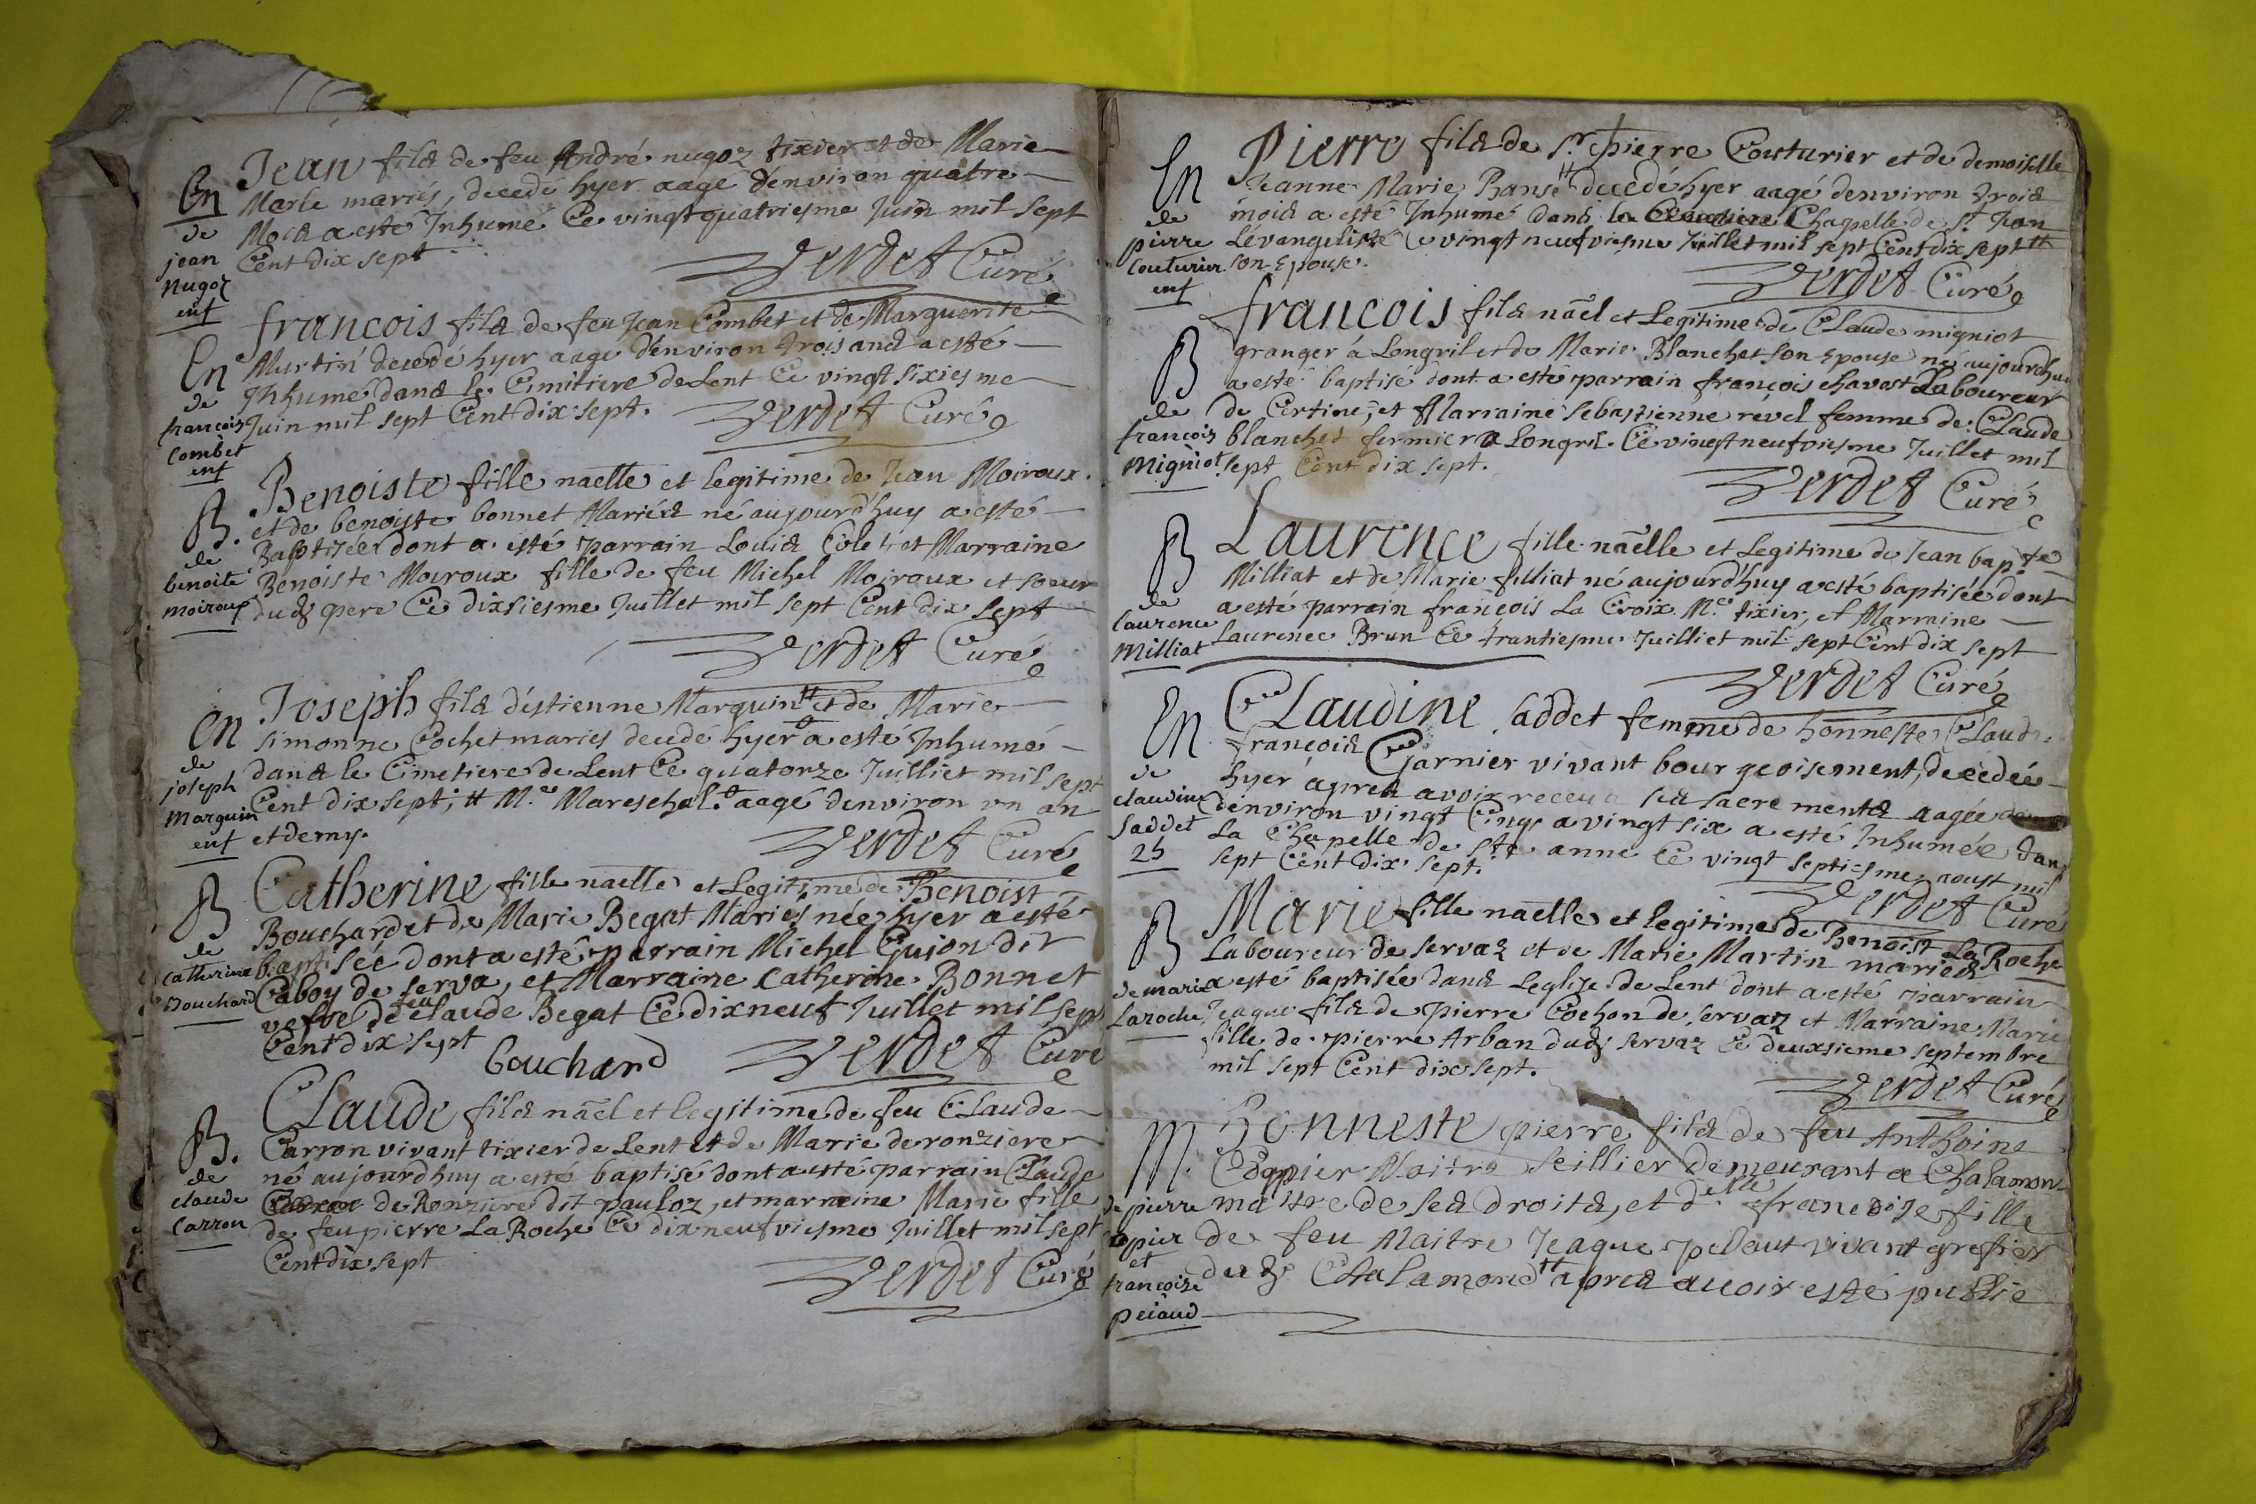 En
de
jean
nugoz
enf
Jean fils de feu André nugoz tixier et de Marie
Merle mariés, decedé hyer aagé d'environ quatre
Mois a esté Inhumé Ce vingt quatriesme Juin mil sept
Cent dix sept
Verdet Curé
En
de
francois
Combet
enf
francois fils de feu Jean Combet et de Marguerite
Martin decedé hyer aage d'environ trois ans a esté
Inhumé dans le Cimitiere de Lent Ce vingt sixiesme
Juin mil sept Cent dix sept. Verdet Curé
B.
de
benoite
moiroux
Benoiste fille naelle et legitime de Jean Moiroux
et de benoiste bonnet Mariés né aujourd'huy a esté
Baptizée dont a esté parrain Louis Colet et Marraine
Benoiste Moiroux fille de feu Michel Moiroux et soeur
dud pere Ce dixsiesme Juillet mil sept Cent dix sept
Verdet Curé
En
de
joseph
Marguin
enf
Joseph fils d'estienne Marguin tt et de Marie
simonne Cochet maries decedé hyer a esté Inhumé
dans le Cimetiere de Lent Ce quatorze Juilliet mil sept
Cent dix sept; tt Me Mareschal. aagé denviron un an
et demy.
Verdet Curé
B
de
Catherine
Bouchard
Catherine fille naelle et Legitime de Benoist
Bouchard et de Marie Begat Mariés née hyer a esté
baptisée dont a esté parrain Michel Gujon dit
Caboy de serva, et Marraine Catherine Bonnet
vefve de feu Claude Begat Ce dixneuf Juillet mil sept
Cent dix sept
bouchard Verdet Curé
B.
de
claude
Carron
Claude fils nael et legitime de feu Claude
Carron vivant tixier de Lent et de Marie deronziere
né aujourdhuy a esté baptisé dont a esté parrain Claude
de Ronziere dit pauloz, et marraine Marie fille
de feu pierre La Roche Ce dix neufviesme Juillet mil sept
Cent dix sept
Verdet Curé
En
de
pierre
Couturier
enf
Pierre fils de Sr. pierre Couturier et de demoiselle
Jeanne Marie Ranse tt decedé hyer aagé denviron trois
mois a esté Inhumé dans la Chapelle de St Jean
Lévangeliste Ce vingt neufviesme Juillet mil sept Cent dix sept tt
son Epouse.
Verdet Curé
B
de
francois
Migniot
francois fils nael et Legitime de Claude migniot
granger á Longril et de Marie Blanchet son Epouse né aujourdhuy
a esté baptisé dont a esté parrain françois chavat Laboureur
de Certines, et Marraine sebastienne revel femme de Claude
blanchet fermier a Longril. Ce vingt neufviesme Juillet mil
sept Cent dix sept.
Verdet Curé
B
de
Laurence
Milliat
Laurence fille naelle et Legitime de Jean bapte
Milliat et de Marie filliat né aujourd'huy a esté baptisée dont
a esté parrain françois La Croix Me tixier, et Marraine
Laurence Brun Ce trantiesme Juilliet mil sept Cent dix sept
Verdet Curé
En
de
claudine
saddet
25
Claudine saddet femme de honneste Claude
françois Garnier vivant bourgeoisement, decedée
hyer aprés avoir receu ses sacrements aagée
denviron vingt Cinq a vingt six a esté Inhumée dans
La Chapelle de Ste anne Ce vingt septiesme aoust mil
sept Cent dix sept.
Verdet Curé
B
de marie
Laroche
Marie fille naelle et legitime de Benoist La Roche
Laboureur de servaz et de Marie Martin mariés
a esté baptisée dans Leglize de Lent dont a esté parrain
Jeaque fils de pierre Cochon de servaz et Marraine Marie
fille de pierre Arban dud servaz Ce deuxsieme septembre
mil sept Cent dix sept.
Verdet Curé
M.
de pierre
Copier
et
francoize
peiaud
Honneste pierre fils de feu Anthoine
Copier Maitre seillier demeurant a Chalamon
maistre de ses droits, et delle francoise fille
de feu Maitre Jeaque pelaut vivant grefier
dud Chalamond tt apres avoir esté publié